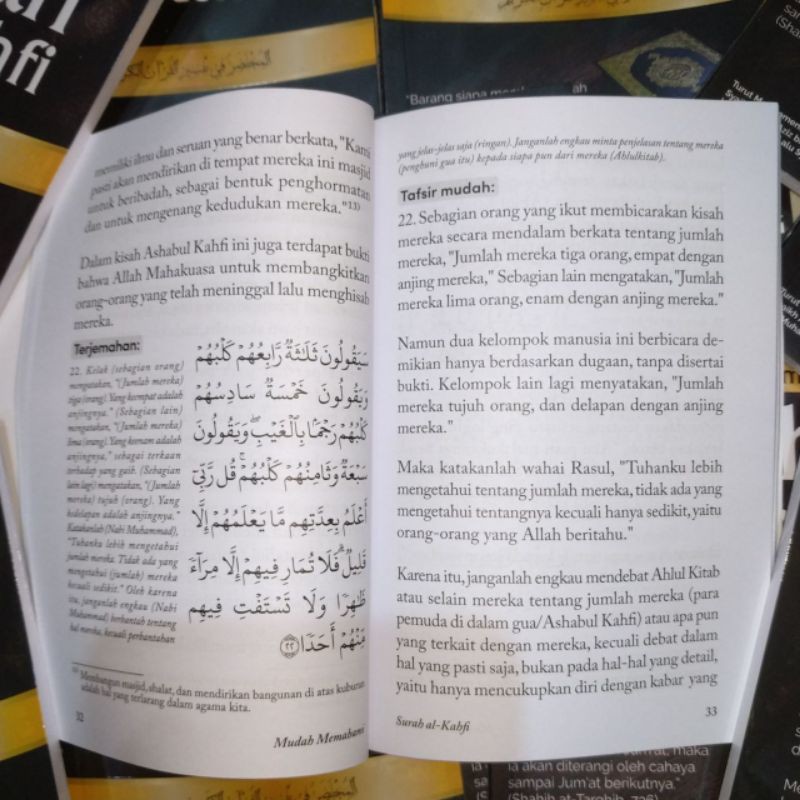 memiliki ilmu dan seruan yang benar berkata, "Kami
pasti akan mendirikan di tempat mereka ini masjid
untuk beribadah, sebagai bentuk penghormatan
dan untuk mengenang kedudukan mereka."13)
Dalam kisah Ashabul Kahfi ini juga terdapat bukti
bahwa Allah Mahakuasa untuk membangkitkan
orang-orang yang telah meninggal lalu menghisab
mereka.
Terjemahan:
22. Kelak (sebagian orang)
mengatakan, "(Jumlah mereka)
tiga (orang). Yang keempat adalah
anjingnya." (Sebagian lain)
mengatakan, "(Jumlah mereka)
lima (orang). Yang keenam adalah
anjingnya," sebagai terkaan
terhadap yang gaib. (Sebagian
lain lagi) mengatakan, "(Jumlah
mereka) tujuh (orang). Yang
kedelapan adalah anjingnya."
Katakanlah (Nabi Muhammad),
"Tuhanku lebih mengetahui
jumlah mereka. Tidak ada yang
mengetahui (jumlah) mereka
kecuali sedikit." Oleh karena
itu, janganlah engkau (Nabi
Muhammad) berbantah tentang
hal mereka, kecuali perbantahan
سَيَقُولُونَ ثَلَٰثَةٌ رَّابِعُهُمْ كَلْبُهُمْ
وَيَقُولُونَ خَمْسَةٌ سَادِسُهُمْ
كَلْبُهُمْ رَجْمًۢا بِٱلْغَيْبِ ۖ وَيَقُولُونَ
سَبْعَةٌ وَثَامِنُهُمْ كَلْبُهُمْ ۚ قُل رَّبِّىٓ
أَعْلَمُ بِعِدَّتِهِم مَّا يَعْلَمُهُمْ إِلَّا
قَلِيلٌ ۗ فَلَا تُمَارِ فِيهِمْ إِلَّا مِرَآءً
ظَٰهِرًا وَلَا تَسْتَفْتِ فِيهِم
مِّنْهُمْ أَحَدًا ٢٢
13) Membangun masjid, shalat, dan mendirikan bangunan di atas kuburan
adalah hal yang terlarang dalam agama kita.
32
Mudah Memahami
yang jelas-jelas saja (ringan). Janganlah engkau minta penjelasan tentang mereka
(penghuni gua itu) kepada siapa pun dari mereka (Ahlulkitab).
Tafsir mudah:
22. Sebagian orang yang ikut membicarakan kisah
mereka secara mendalam berkata tentang jumlah
mereka, "Jumlah mereka tiga orang, empat dengan
anjing mereka," Sebagian lain mengatakan, "Jumlah
mereka lima orang, enam dengan anjing mereka."
Namun dua kelompok manusia ini berbicara de-
mikian hanya berdasarkan dugaan, tanpa disertai
bukti. Kelompok lain lagi menyatakan, "Jumlah
mereka tujuh orang, dan delapan dengan anjing
mereka."
Maka katakanlah wahai Rasul, "Tuhanku lebih
mengetahui tentang jumlah mereka, tidak ada yang
mengetahui tentangnya kecuali hanya sedikit, yaitu
orang-orang yang Allah beritahu."
Karena itu, janganlah engkau mendebat Ahlul Kitab
atau selain mereka tentang jumlah mereka (para
pemuda di dalam gua/Ashabul Kahfi) atau apa pun
yang terkait dengan mereka, kecuali debat dalam
hal yang pasti saja, bukan pada hal-hal yang detail,
yaitu hanya mencukupkan diri dengan kabar yang
Surah al-Kahfi
33
hfi
"Barang siapa
ah
Turut
maka
ia akan diterangi oleh cahaya
sampai Jum'at berikutnya."
(Shahih at-Targhib, 736)